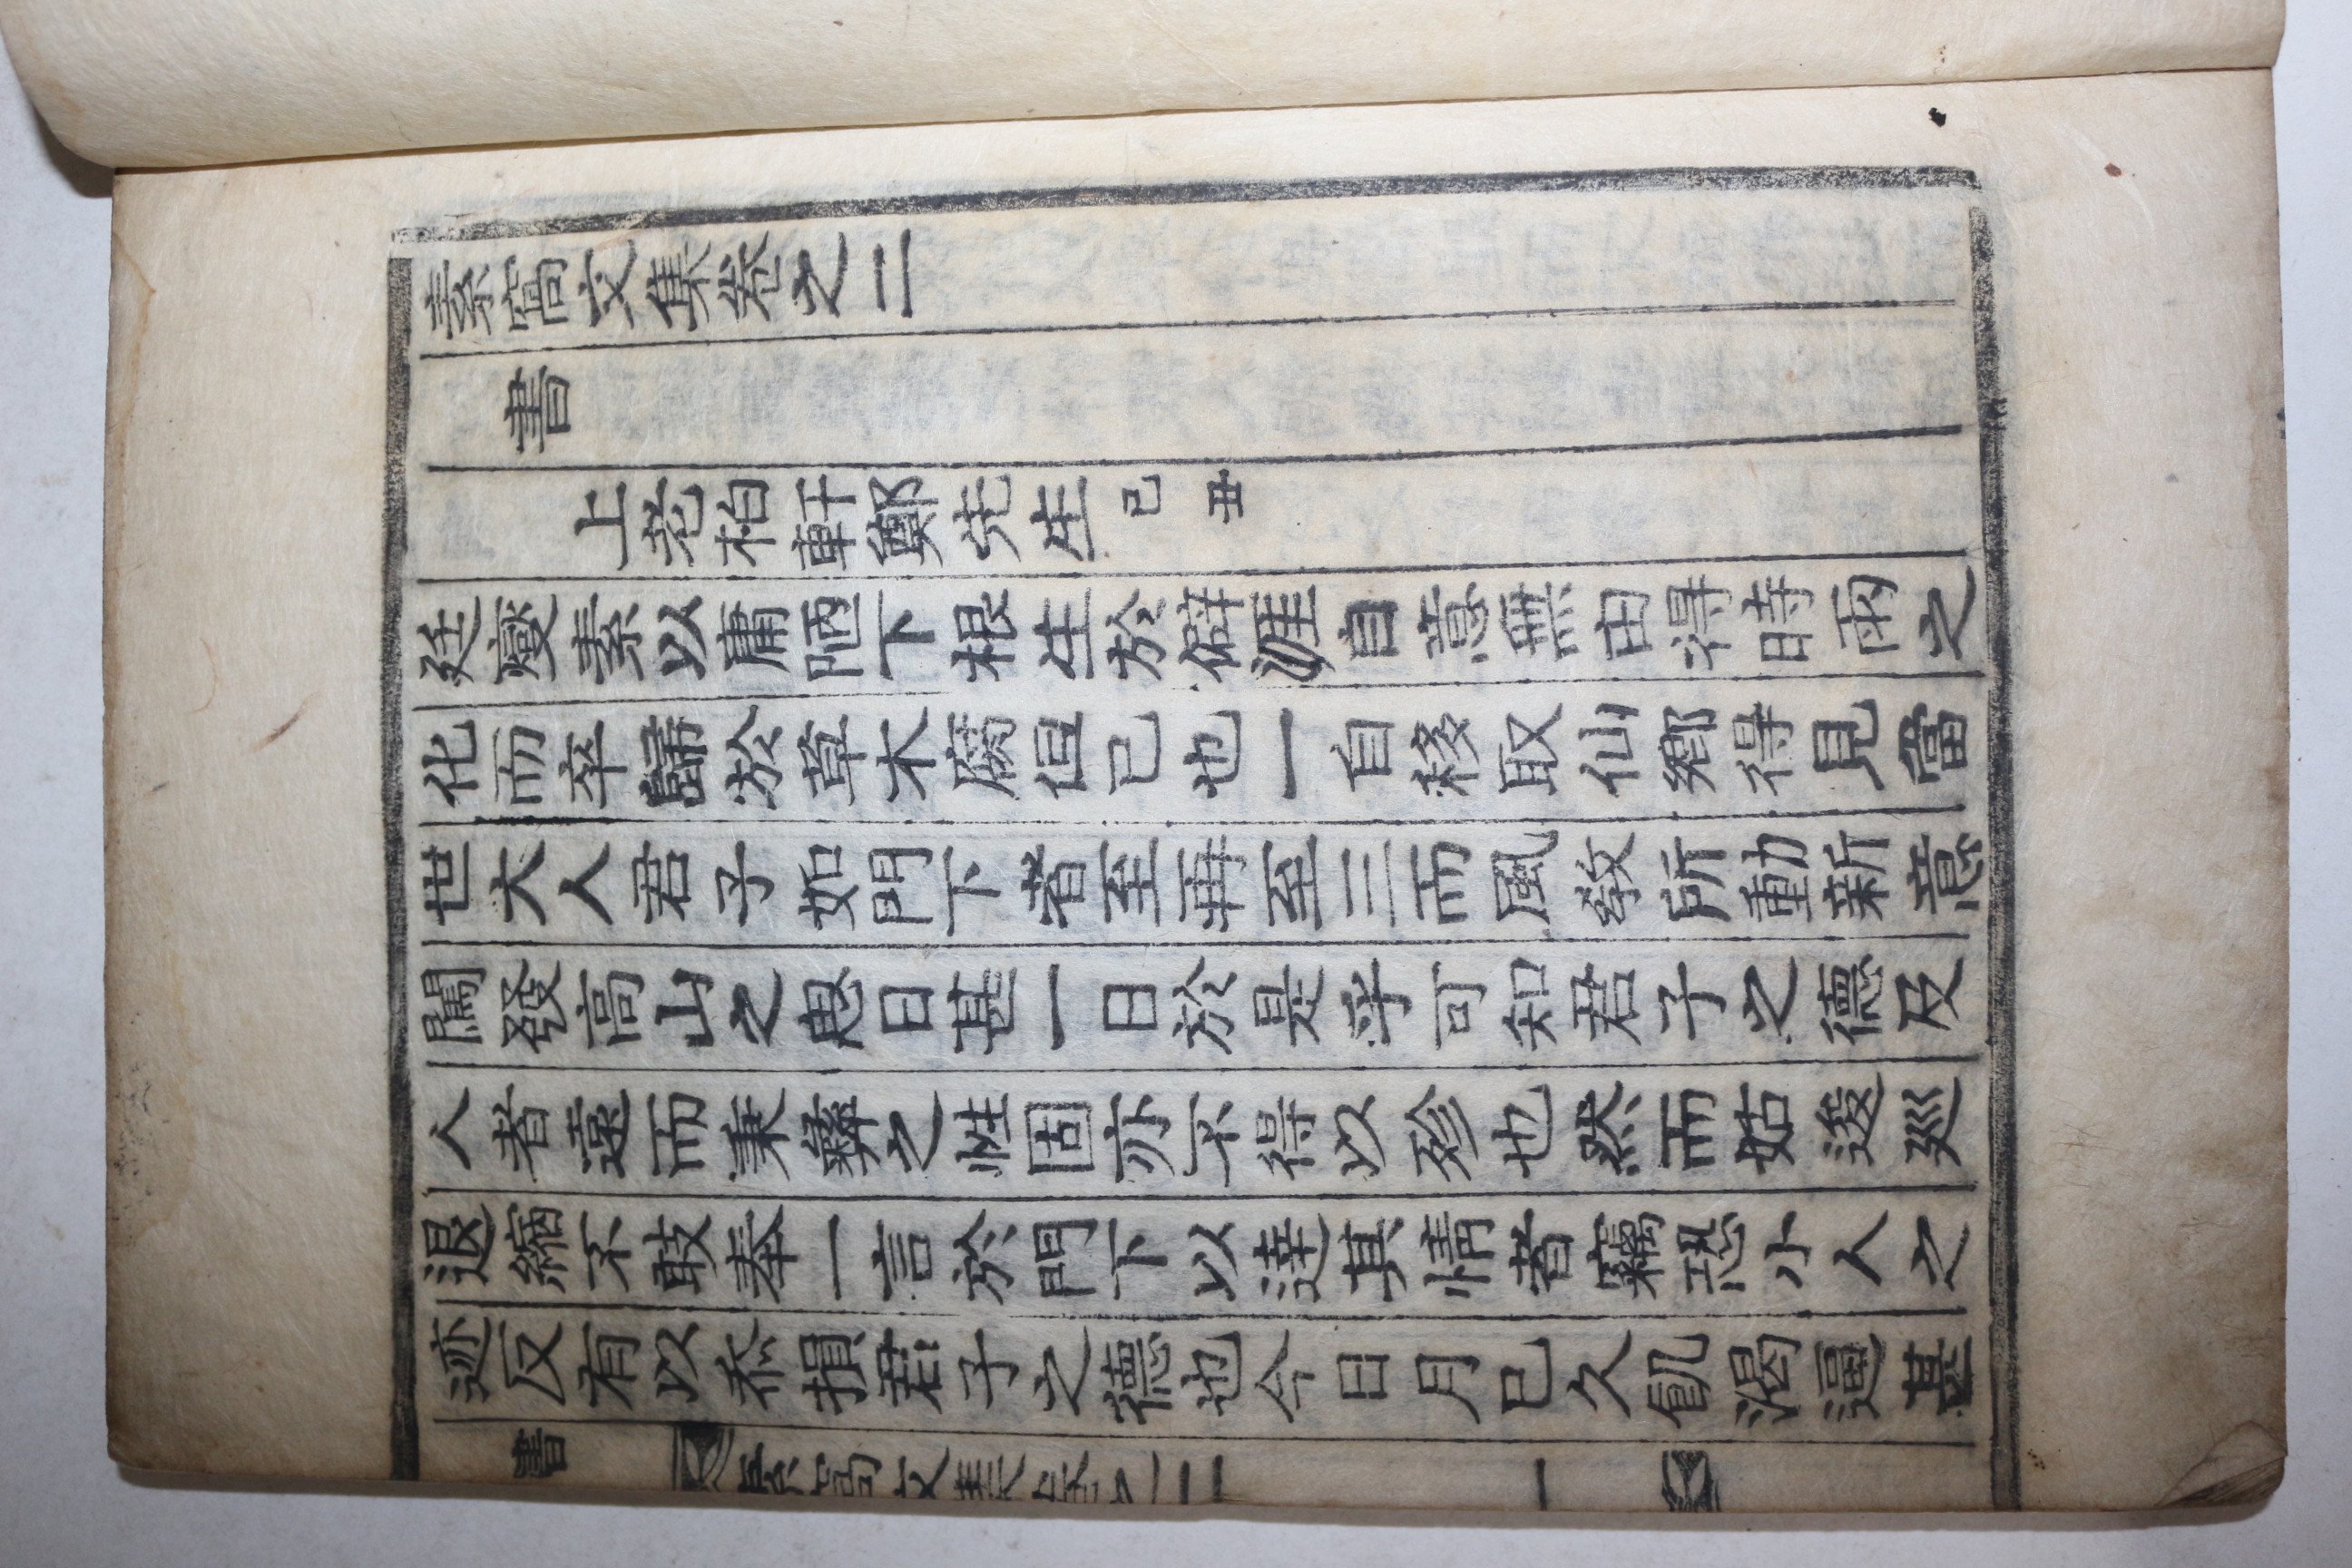 素窩文集卷之二
書
上老柏軒鄭先生 己丑
廷燮素以庸陋下根生於僻涯自意無由得時雨之
化而卒歸於草木腐但已也一自移取仙鄉得見當
世大人君子如門下者至再至三而風教所動新意
闖發高山之思日甚一日於是乎可知君子之德及
人者遠而秉彝之性固亦不得以殄也然而姑逡巡
退縮不敢奉一言於門下以達其情者竊恐小人之
迹反有以忝損君子之德也今日月已久飢渴逼甚
書 素窩文集卷之二 一